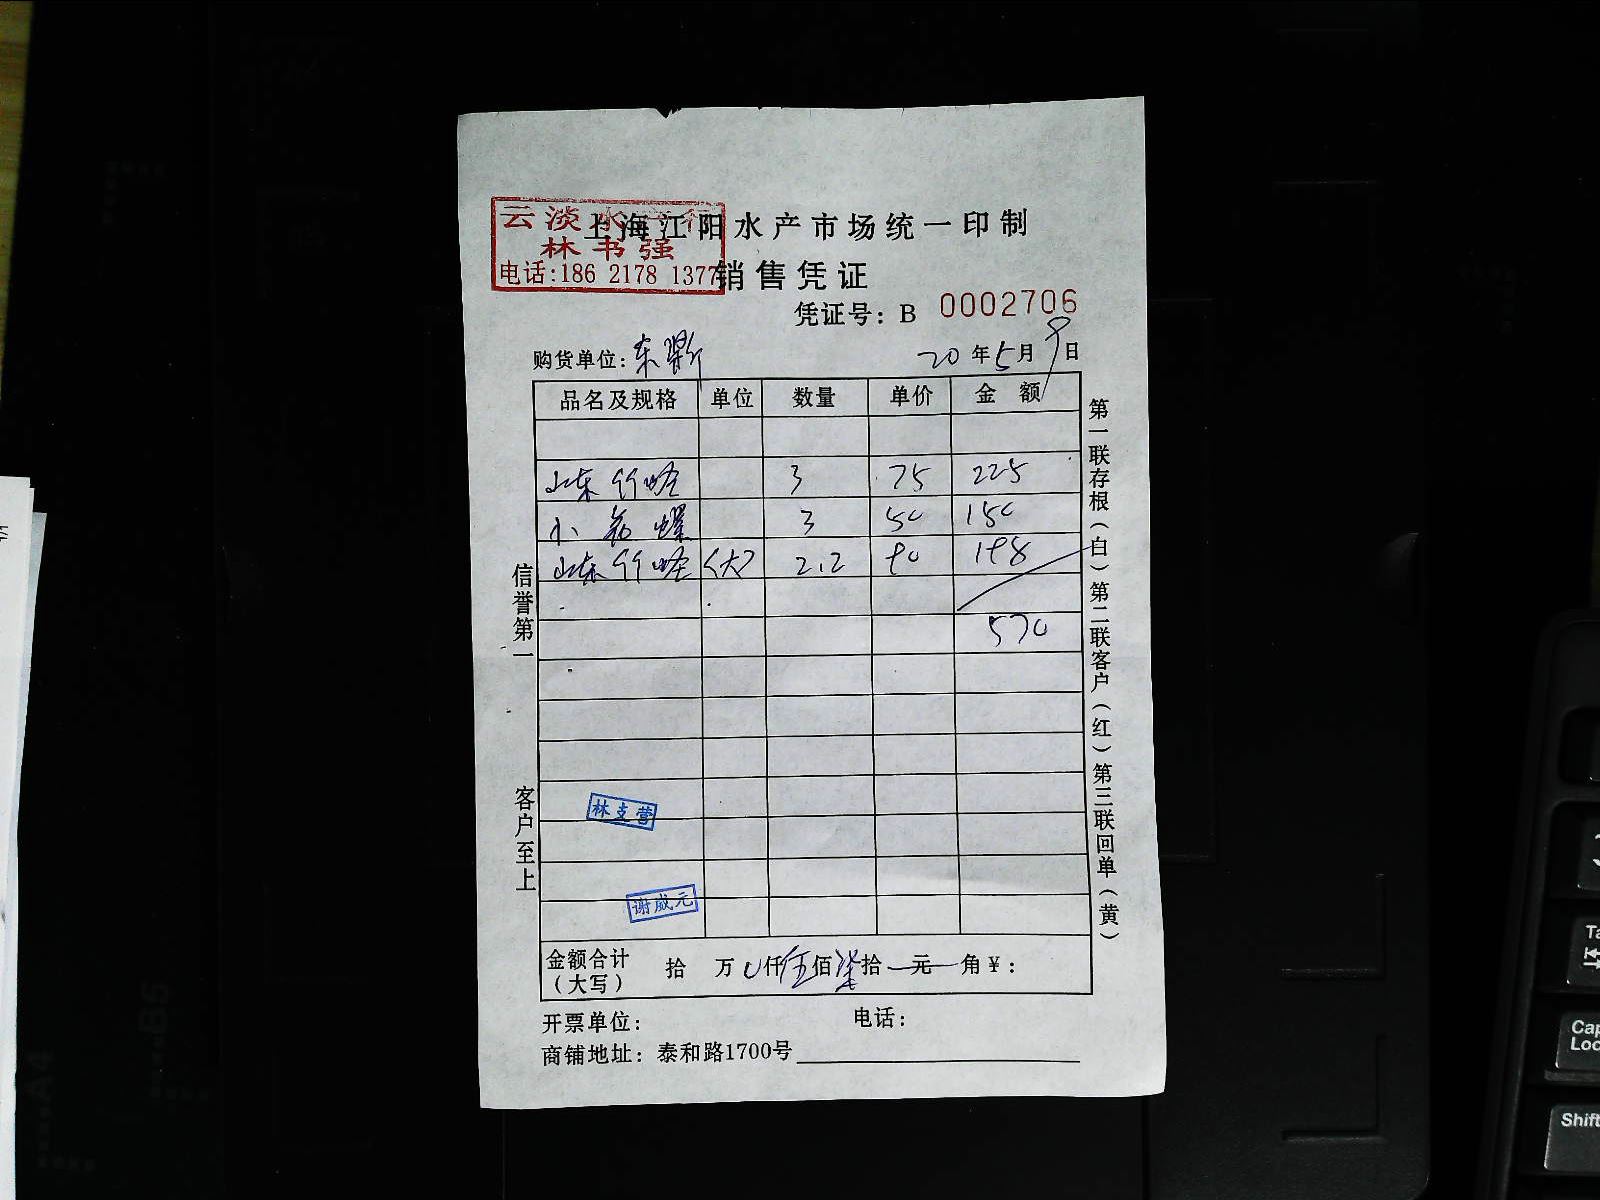 云淡水 行
林书强
电话:186 2178 1377
上海江阳水产市场统一印制
销售凭证
凭证号: B 0002706
购货单位: 东鼎 20年5月9日
品名及规格 单位 数量 单价 金 额
山东竹蛏 3 75 225
小 螺 3 50 150
山东竹蛏 (大) 2.2 90 198
570
林支营
谢威元
金额合计(大写) 拾 万 0仟伍佰柒拾 元 角¥:
开票单位: 电话:
商铺地址: 泰和路1700号
信誉第一 客户至上
第一联存根(白)第二联客户(红)第三联回单(黄)
A4
B5
Tab
Caps
Lock
Shift